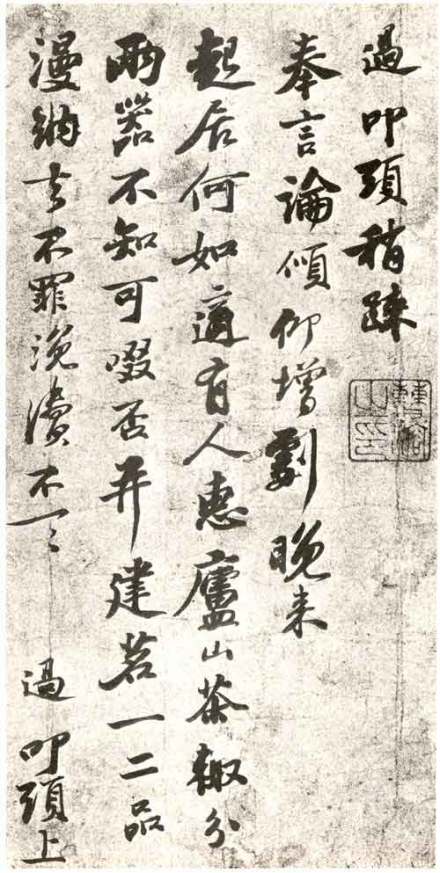 過叩頭稍疎
奉言論傾仰增劇晚来
起居何如適有人惠廬山茶輒分
兩器不知可啜否并建茗一二品
漫納去不罪浼瀆不一〻 過叩頭上